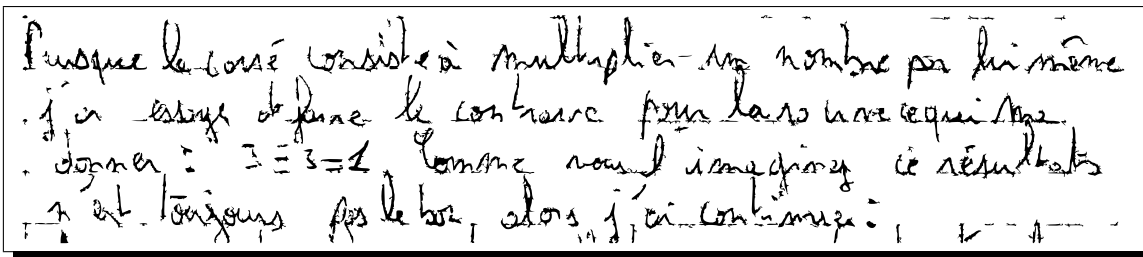 Puisque le carré consiste à multiplier un nombre par lui même
j'ai essayé de faire le contraire pour la racine ce qui me
donner : 3 ÷ 3 = 1. Comme vous l'imaginez ce résultats
n'est toujours pas le bon, alors j'ai continuer :